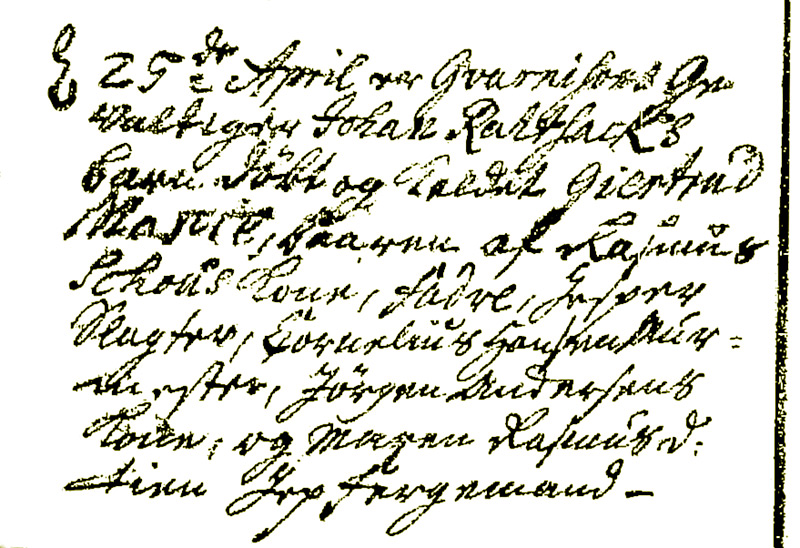 25de April er Gvarnisons Ge
waltiger Johan Raltsack's
barn döbt og kaldet Giertrud
Marie, baaren af Rasmus
Schous Kone, fadre, Jesper
Slagter, Cornelius Hansen Mur-
mester, Jörgen Andersens
Kone, og Maren Rasmusd:
tien Jep færgemand -